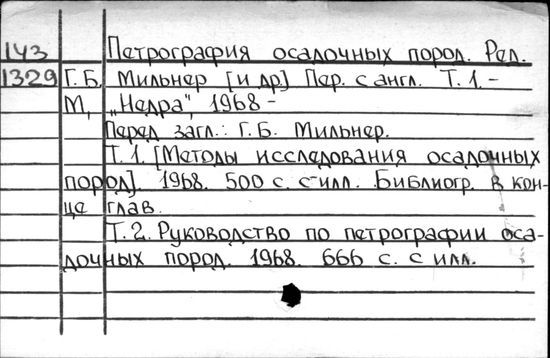 143 Петрография осадочных пород. Ред.
1329 Г.Б. Мильнер [и др] Пер. с англ. Т. 1. –
М, „Недра", 1968 –
Перед загл.: Г.Б. Мильнер.
Т. 1. [Методы исследования осадочных
пород]. 1968. 500 с. с илл. Библиогр. в кон-
це глав.
Т. 2. Руководство по петрографии оса-
дочных пород. 1968. 666 с. с илл.